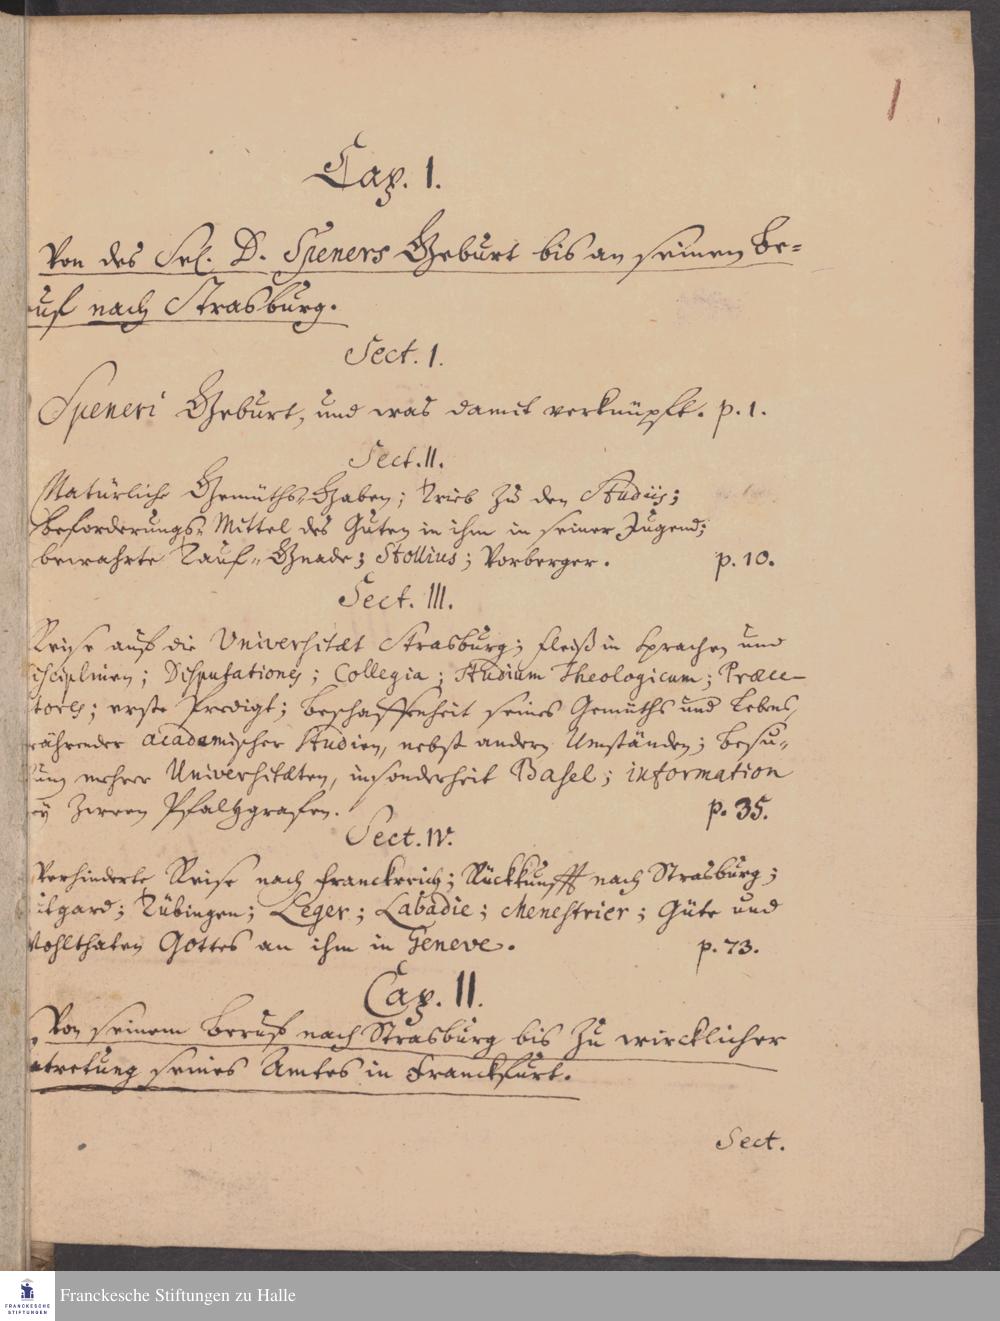 1
Cap. I.
Von des Sel. D. Speners Geburt bis an seinen Be-
uf nach Strasburg.
Sect. I.
Speneri Geburt, und was damit verknüpft. p. 1.
Sect. II.
Natürliche Gemüths-Gaben; Trieb zu den Studiis;
beforderungs-Mittel des Guten in ihm in seiner Jugend;
bewahrte Tauf-Gnade; Stollius; Vorberger. p. 10.
Sect. III.
Reise auf die Universitæt Strasburg; Fleiß in Sprachen und
isciplinen; Disputationes; Collegia; Studium Theologicum; Præce-
tores; erste Predigt; Beschaffenheit seines Gemüths und Lebens,
währender academischer Studien, nebst andern Umständen; Besu-
ung mehrer Universitæten, insonderheit Basel; information
ey zween Pfaltzgrafen. p. 35.
Sect. IV.
Verhinderte Reise nach Franckreich; Rückkunfft nach Strasburg;
tgard; Tübingen; Leger; Labadie; Menestrier; Güte und
Wohlthaten Gottes an ihm in Geneve. p. 73.
Cap. II.
Von seinem Beruf nach Strasburg bis zu wircklicher
tretung seines Amtes in Franckfurt.
Sect.
FRANCKESCHE
STIFTUNGEN
Franckesche Stiftungen zu Halle